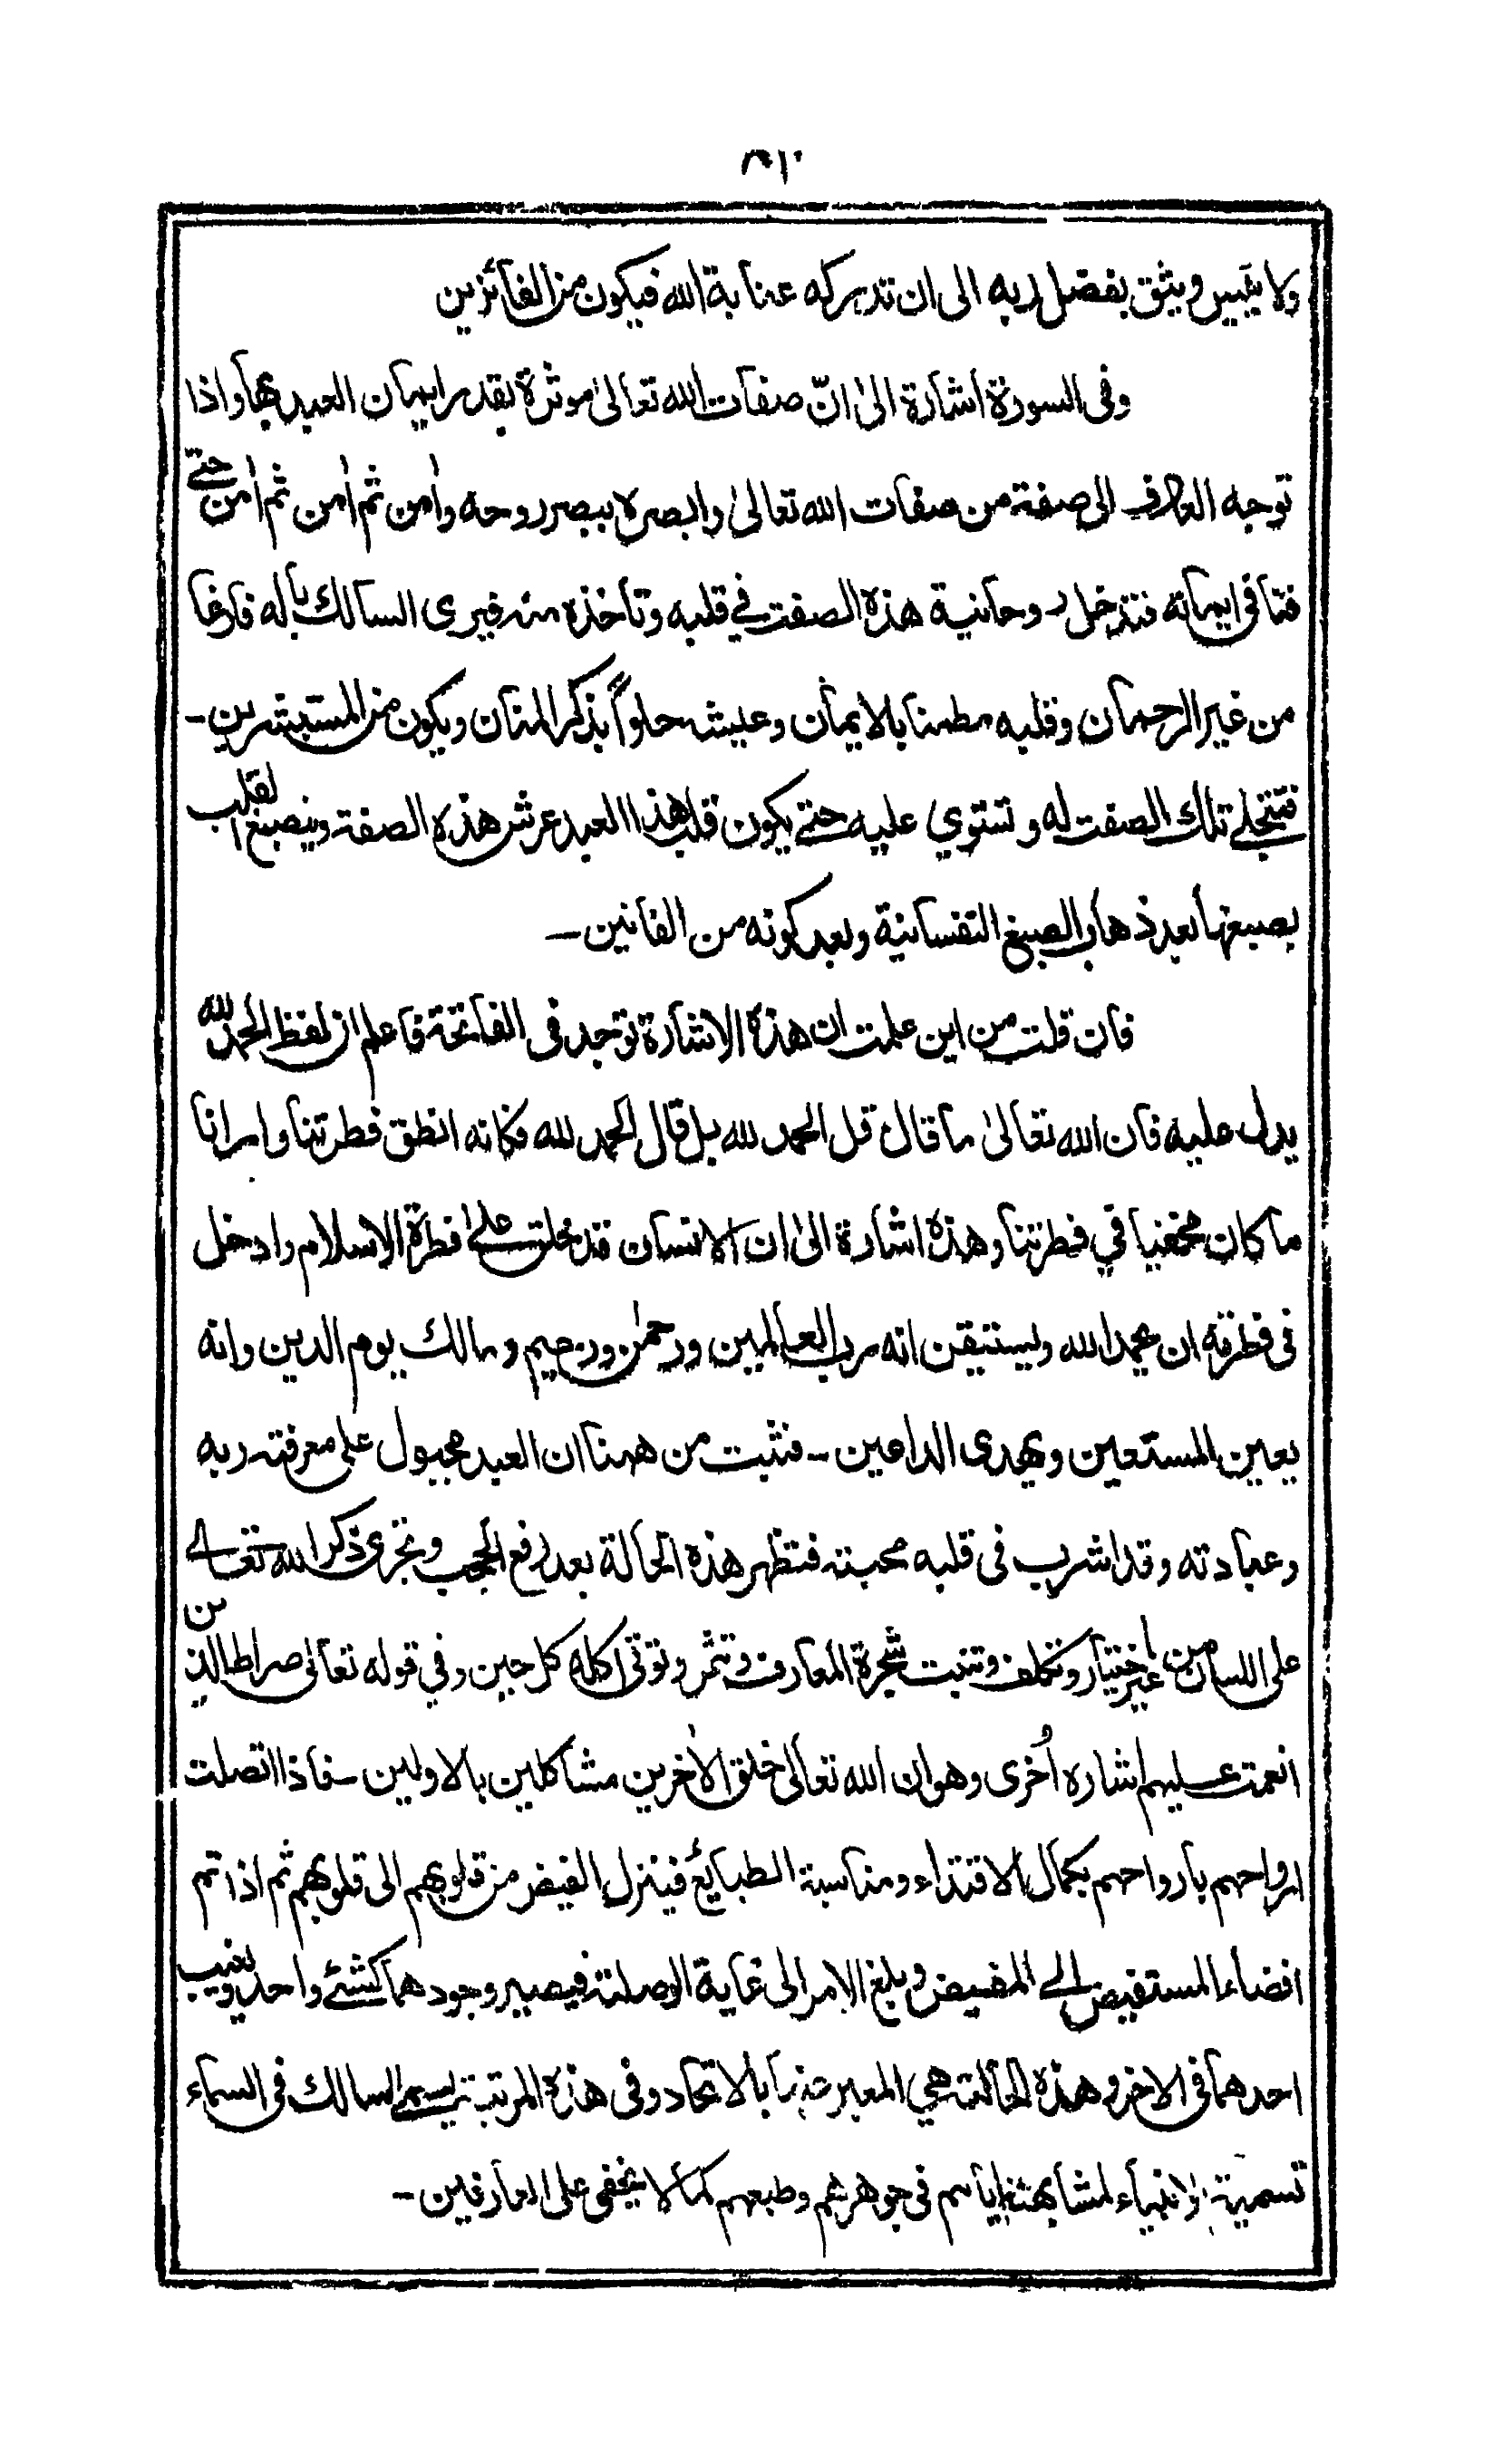 ٣١٠
ولا يئيس ويثق بفضل ربه الى ان تدركه عناية الله فيكون من الفائزين
وفى السورة اشارة الى انّ صفات الله تعالى موثرة بقدر ايمان العبد بها واذا
توجه العارف الى صفة من صفات الله تعالى وابصره ببصر روحه واٰمن ثم اٰمن ثم اٰمن حتى
فنا فى ايمانه فتدخل روحانية هذه الصفت فى قلبه وتأخذه منه فيرى السالك باله فارغا
من غير الرحمان وقلبه مطمئنا بالايمان وعيشه حلواً بذكر المنان ويكون من المستبشرين-
فتتجلى تلك الصفت له وتستوي عليه حتى يكون قلب هذا العبد عرش هذه الصفة وينصبغ القلب
بصبغها بعد ذهاب الصبغ النفسانية وبعد كونه من الفانين-
فان قلت من اين علمت ان هذه الاشارة توجد فى الفاتحة فاعلم ان لفظ الحمد لله
يدل عليه فان الله تعالى ما قال قل الحمد لله بل قال الحمد لله فكانه انطق فطرتنا وارانا
ما كان مخفيا في فطرتنا وهذه اشارة الى ان الانسان قد خلق على فطرة الاسلام وادخل
فى فطرته ان يحمد الله ويستيقن انه رب العالمين ورحمٰن ورحيم ومالك يوم الدين وانه
يعين المستعين ويهدى الداعين- فثبت من ههنا ان العبد مجبول على معرفة ربه
وعبادته وقد اشرب فى قلبه محبته فتظهر هذه الحالة بعد رفع الحجب وتجرى ذكر الله تعالى
على اللسان من غير اختيار وتكلف وتنبت شجرة المعارف وتثمر وتوتى اكله كل حين وفي قوله تعالى صراط الذين
انعمت عليهم اشاره اُخرى وهو ان الله تعالى خلق الاٰخرين مشاكلين بالاولين- فاذا اتصلت
ارواحهم بارواحهم بكمال الاقتداء ومناسبة الطبائع فينزل الفيض من قلوبهم الى قلوبهم ثم اذا تم
افضاء المستفيض الى المفيض وبلغ الامر الى غاية الوصلة فيصير وجودهما كشئ واحد ويغيب
احدهما فى الاخر وهذه الحالة هي المعبر عنها بالاتحاد وفى هذه المرتبة يسمى السالك فى السماء
تسمية الانبياء لمشابهته اياهم فى جوهرهم وطبعهم كما لا يخفى على العارفين-